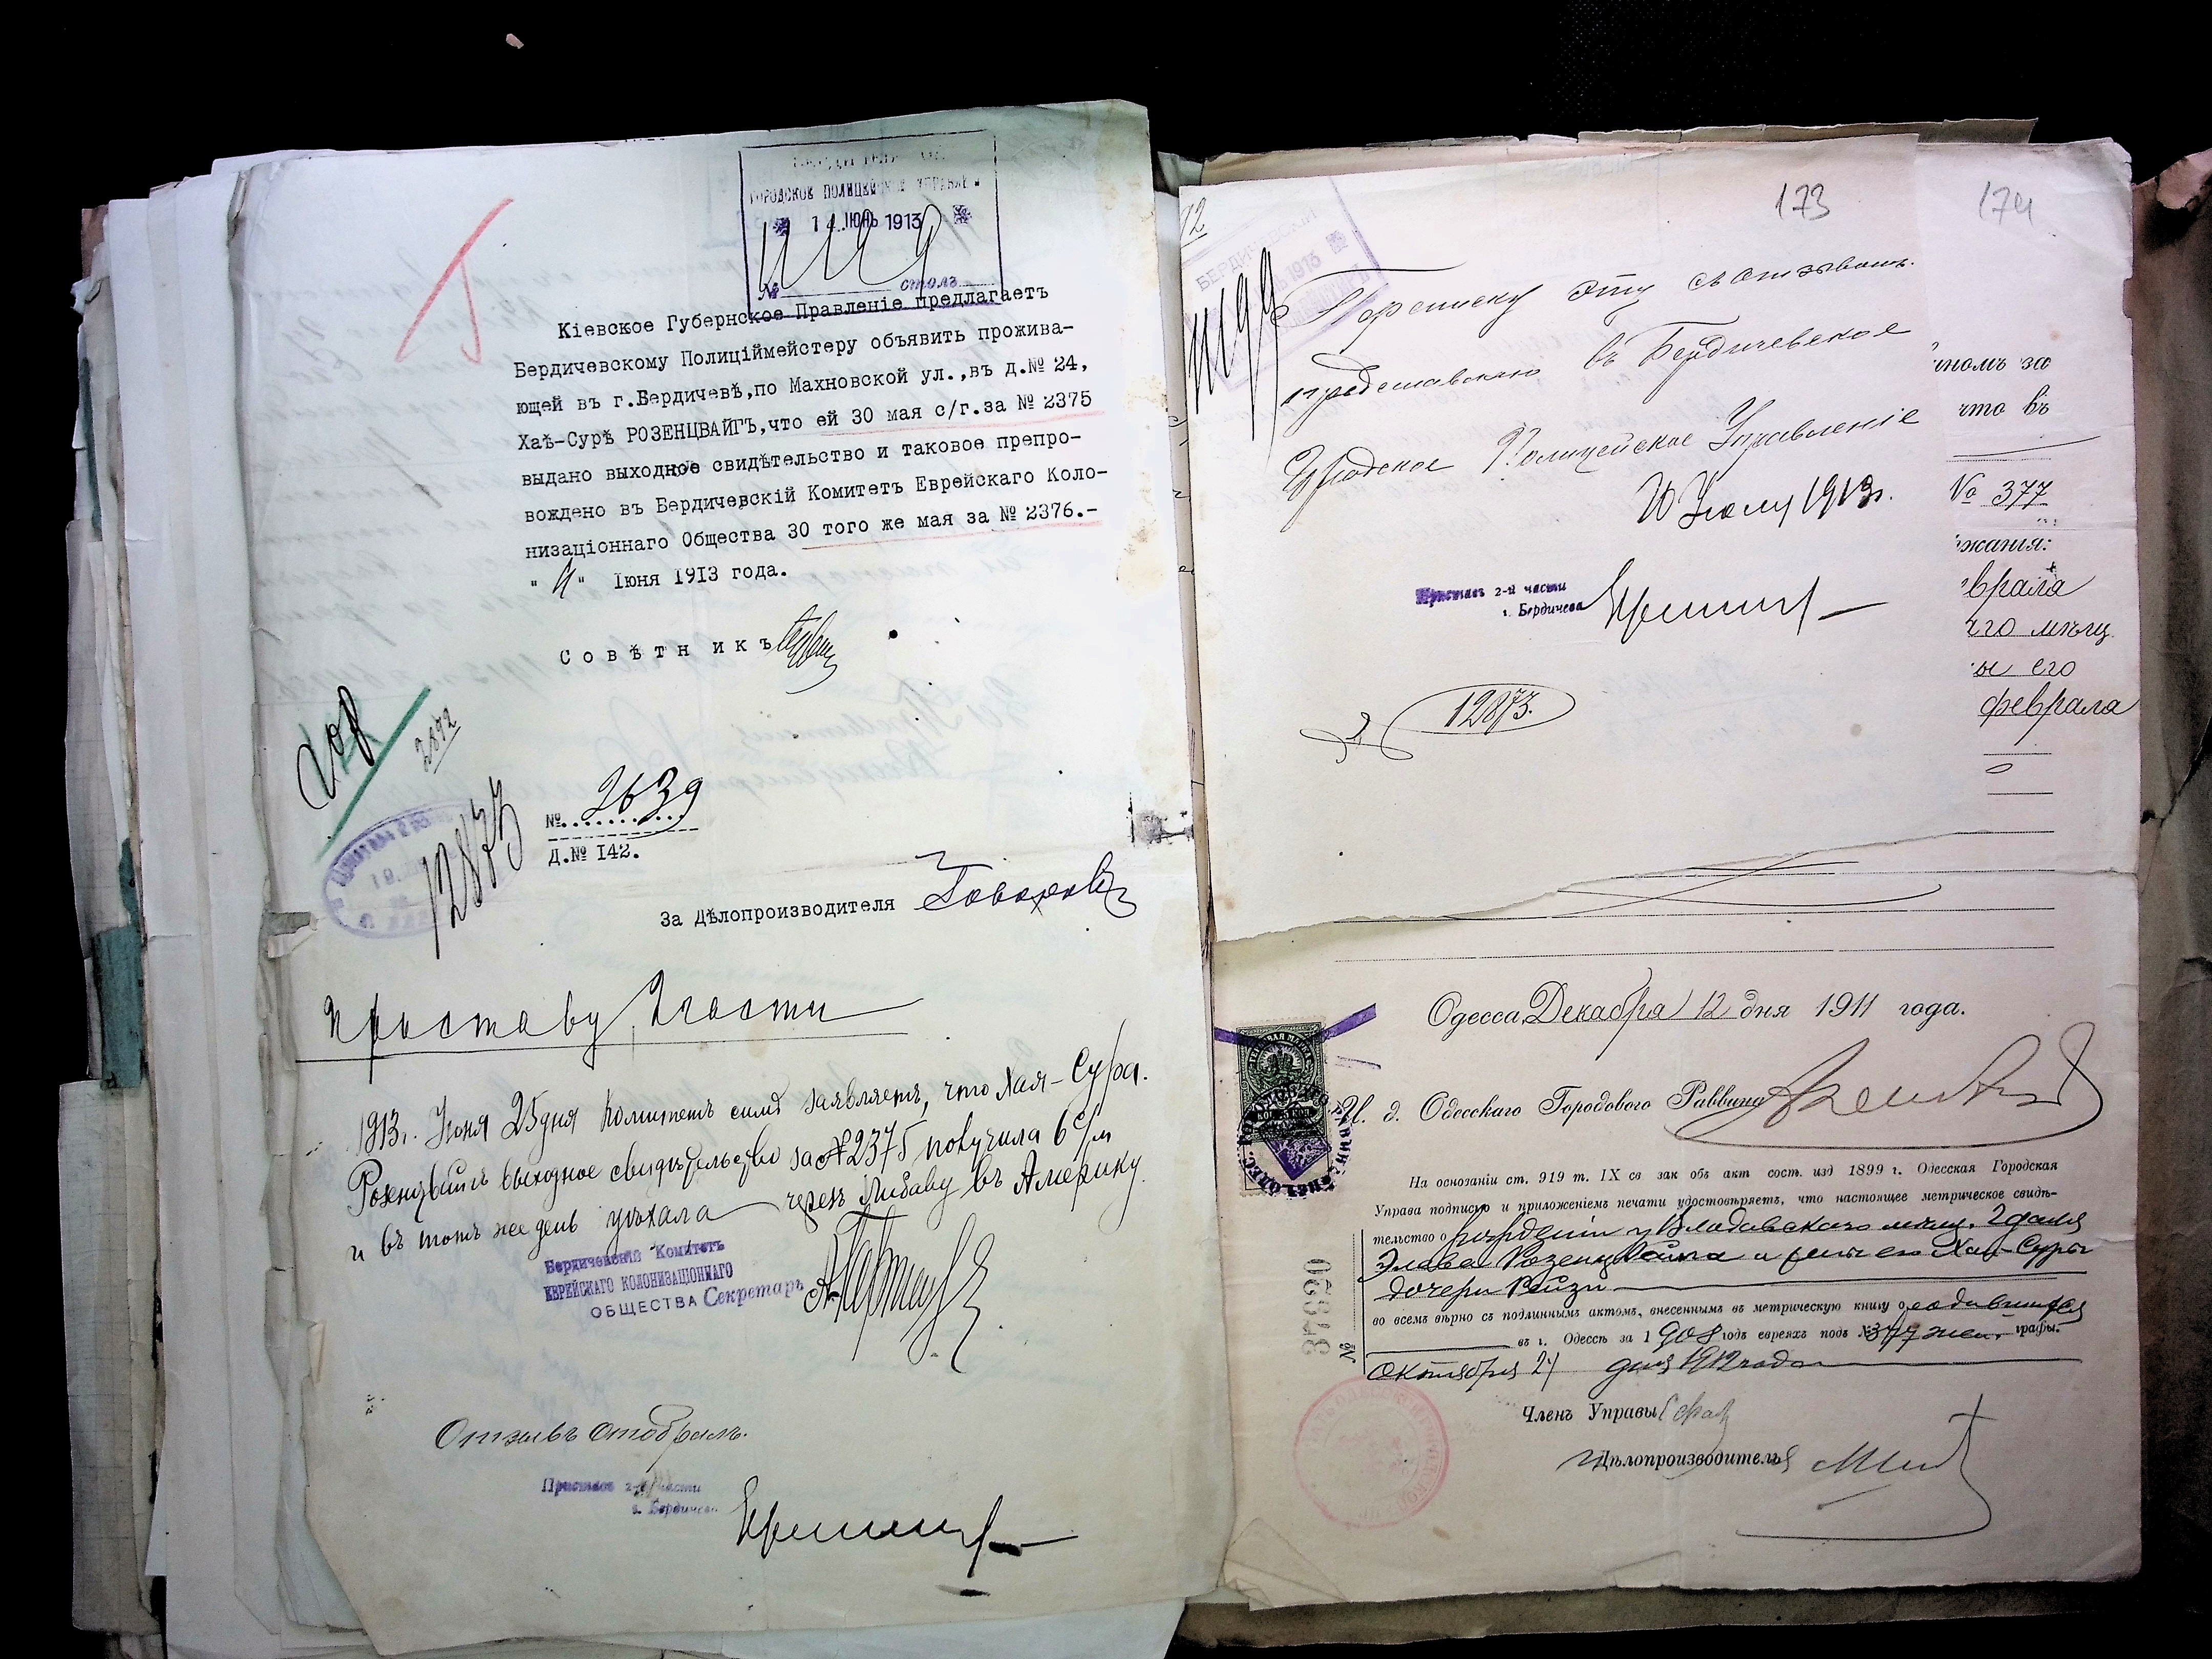 ГОРОДСКОЕ ПОЛИЦЕЙСКОЕ УПРАВЛЕНІЕ
ІЮНЬ 1913
№ столъ
Кіевское Губернское Правленіе предлагаетъ
Бердичевскому Полиціймейстеру объявить прожива-
ющей въ г.Бердичевѣ,по Махновской ул.,въ д.№ 24,
Хаѣ-Сурѣ РОЗЕНЦВАЙГЪ,что ей 30 мая с/г.за № 2375
выдано выходное свидѣтельство и таковое препро-
вождено въ Бердичевскій Комитетъ Еврейскаго Коло-
низаціоннаго Общества 30 того же мая за № 2376.-
" 11 " Іюня 1913 года.
Совѣтникъ
2872
12873
№ 2639
Д.№ 142.
За Дѣлопроизводителя
Приставу 2 части
1913 г. Іюня 25 дня Комитетъ симъ заявляетъ, что Хая-Сура
Розенцвайгъ выходное свидѣтельство за № 2375 получила 6 с/м
и въ тотъ же день уѣхала черезъ Либаву въ Америку.
Бердичевскій Комитетъ
ЕВРЕЙСКАГО КОЛОНИЗАЦІОННАГО
ОБЩЕСТВА Секретарь
Отзывъ отобралъ.
Приставъ 2-й части
г. Бердичева
173
174
БЕРДИЧЕВСКІЙ
1913
Переписку эту съ отзывомъ
представляю въ Бердичевское
Городское Полицейское Управленіе
Іюля 1913 г.
Приставъ 2-й части
г. Бердичева
12873.
что въ
№ 377
жанія:
враля
его мѣщ.
ы его
февраля
Одесса, Декабря 12 дня 1911 года.
И. д. Одесскаго Городового Раввина
На основаніи ст. 919 т. IX св зак объ акт сост. изд 1899 г. Одесская Городская
Управа подписью и приложеніемъ печати удостовѣряетъ, что настоящее метрическое свидѣ-
тельство о рожденіи у Влодавскаго мѣщ. Гдаля
Элева Розенцвейга и жены его Хаи-Суры
дочери Рейзи
во всемъ вѣрно съ подлиннымъ актомъ, внесеннымъ въ метрическую книгу о родившихся
въ г. Одессѣ за 1908 годъ евреяхъ подъ № 377 жен. графы.
Октября 24 дня 1912 года
№
Членъ Управы
Дѣлопроизводитель